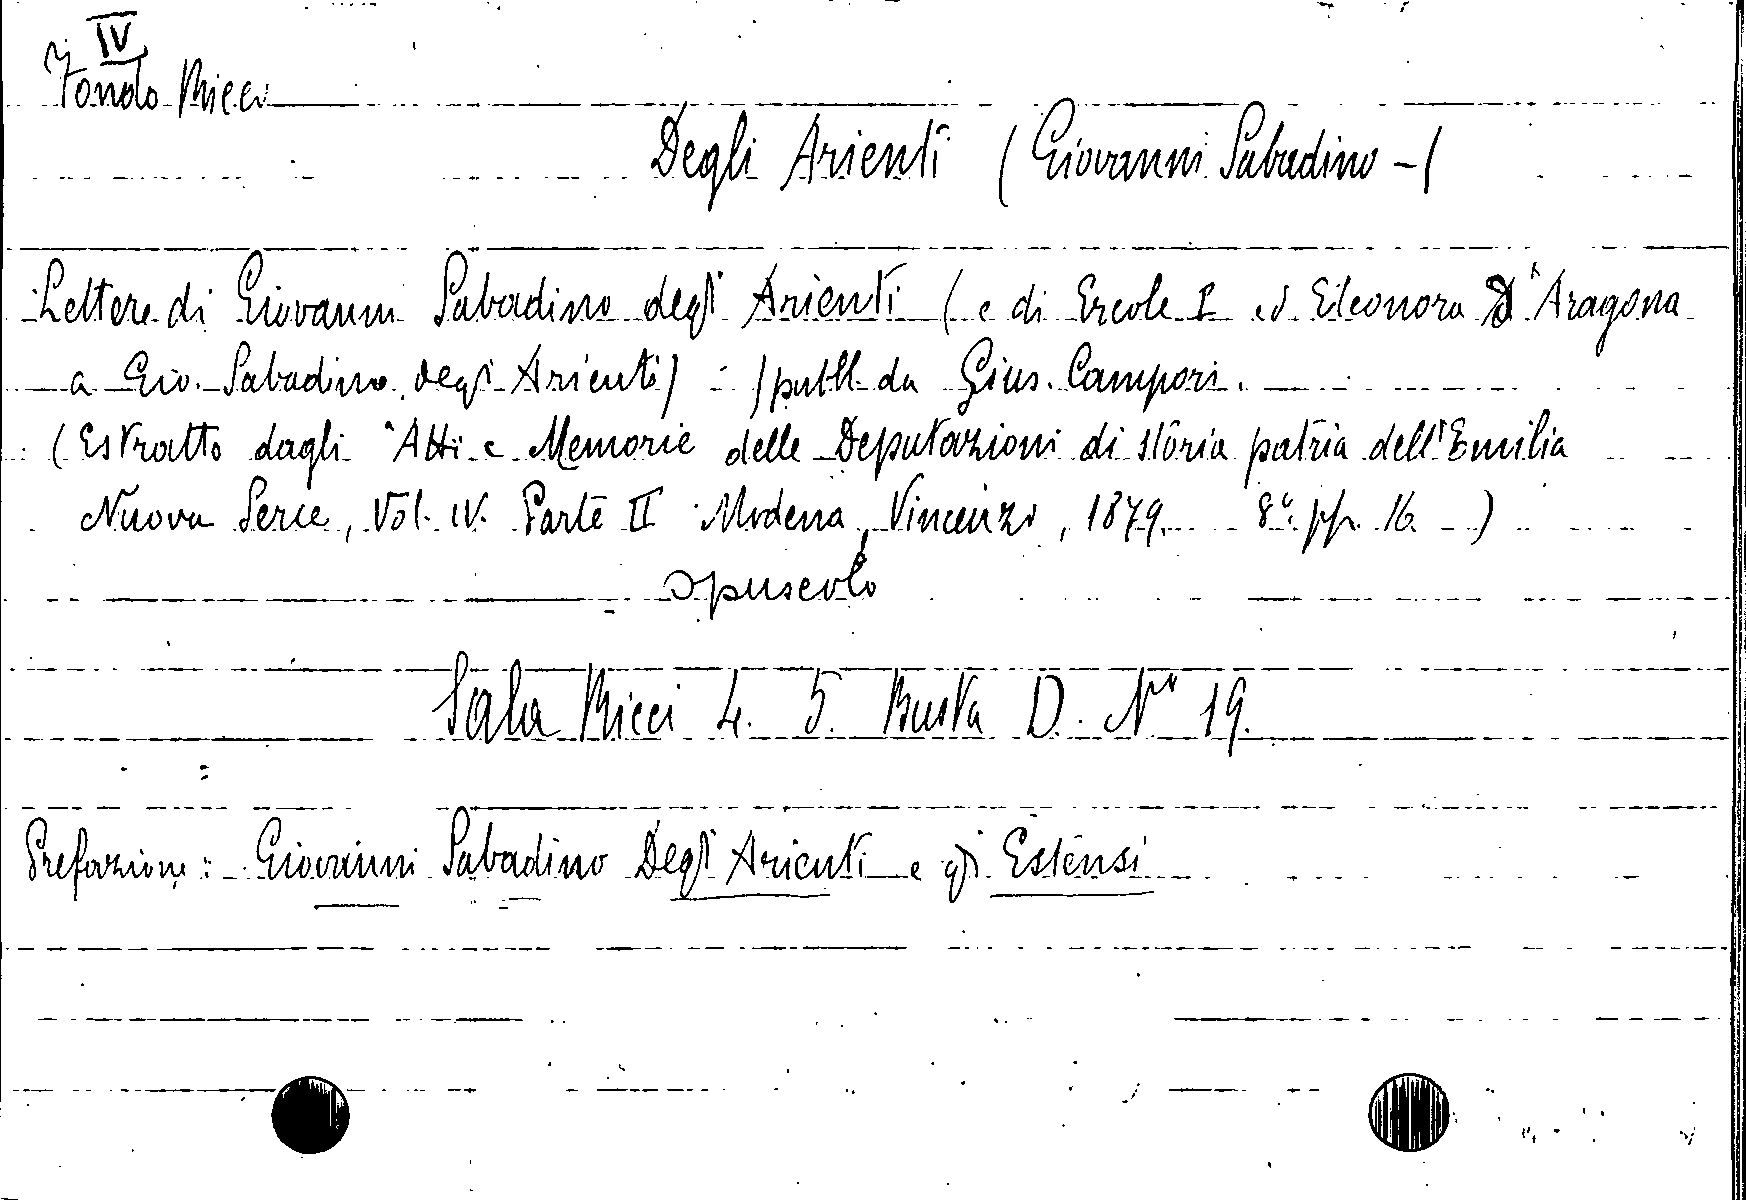 IV
Fondo Ricci
Degli Arienti (Giovanni Sabadino -)
Lettere di Giovanni Sabadino degli Arienti (e di Ercole I ed Eleonora D'Aragona
a Gio. Sabadino degli Arienti) : /publl. da Gius. Campori.
(Estratto dagli "Atti e Memorie delle Deputazioni di storia patria dell'Emilia
Nuova Serie, Vol. IV. Parte II Modena, Vincenzo, 1879. 8°. pp. 16 -)
Opuscolo
Sala Ricci 4. 5. Busta D. N° 19.
Prefazione: Giovanni Sabadino Degli Arienti e gli Estensi